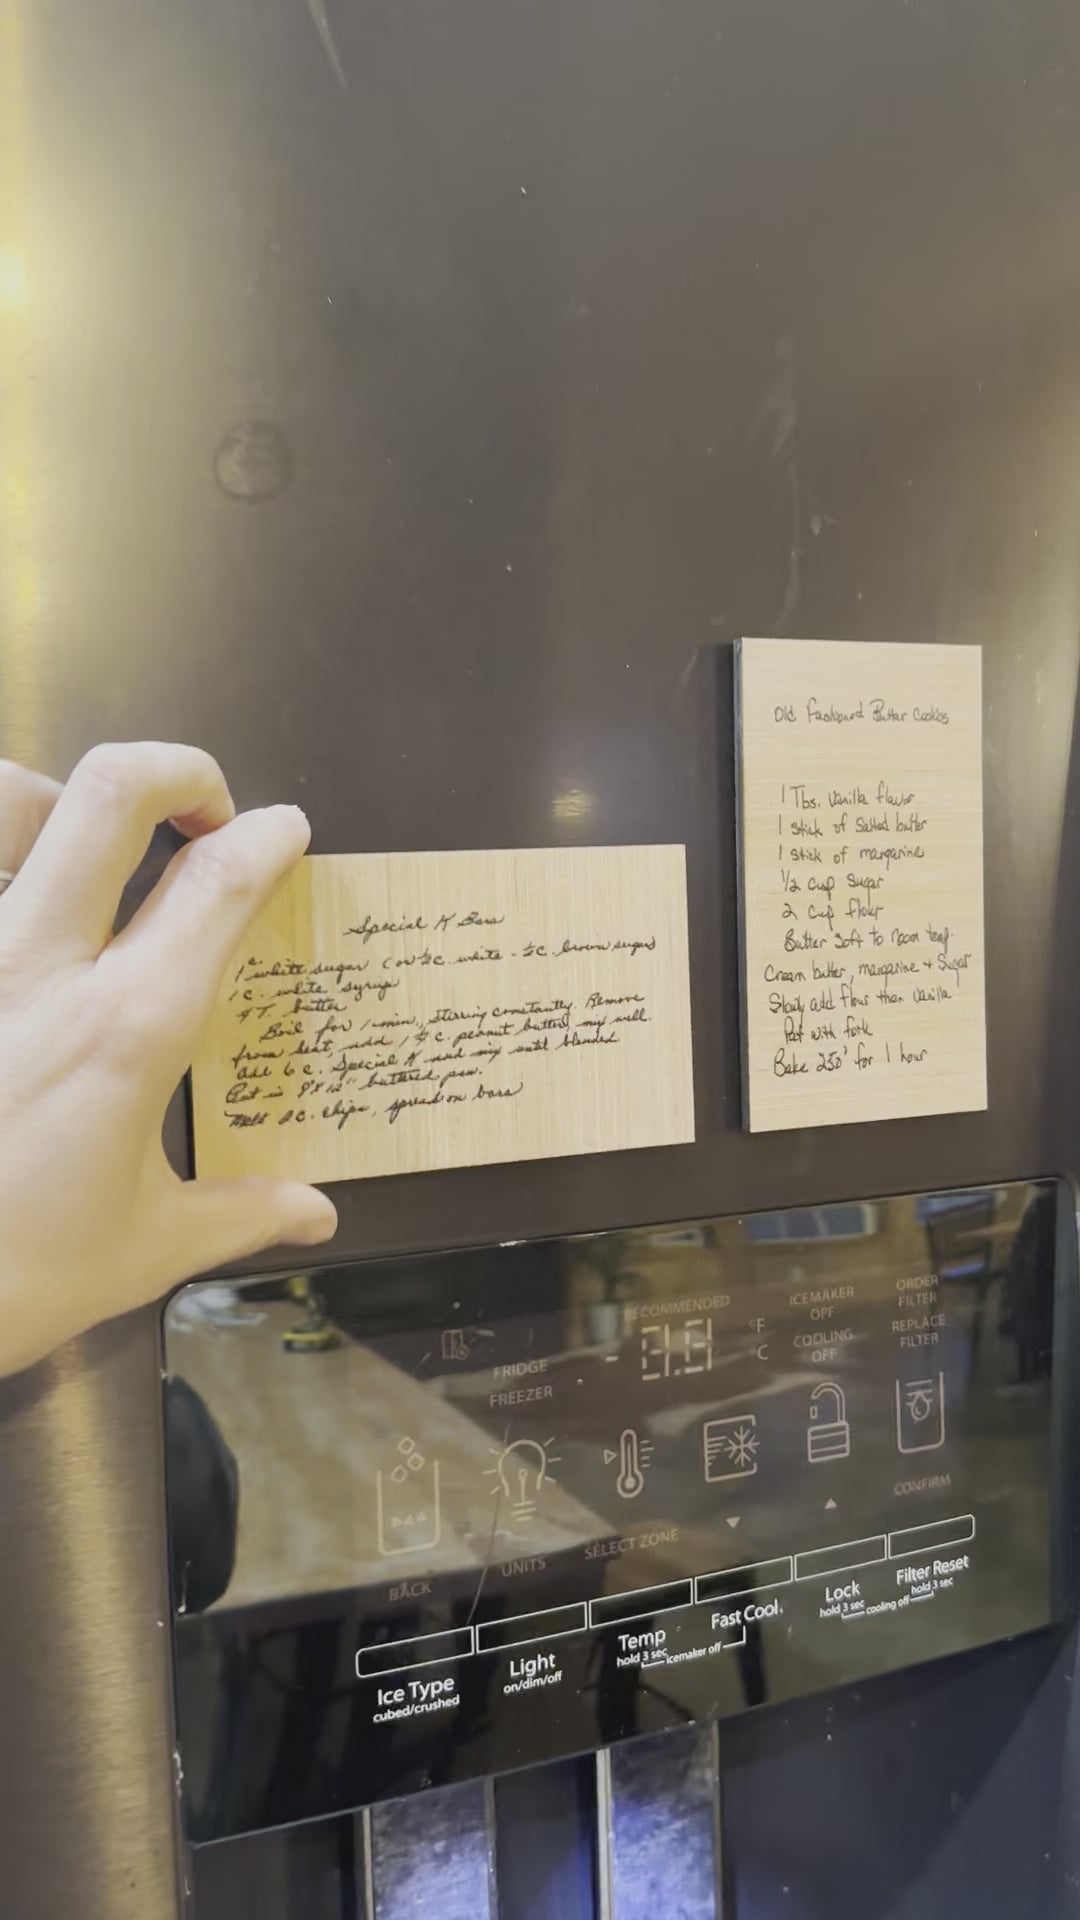 Special K Bars
1 c. white sugar (or ½ c. white - ½ c. brown sugar)
1 c. white syrup
4 T. butter
Boil for 1 min., stirring constantly. Remove
from heat, add 1 ½ c. peanut butter, mix well.
Add 6 c. Special K and mix until blended
Put in 9"x12" buttered pan.
Melt 2 c. chips, spread on bars
Old Fashioned Butter Cookies
1 Tbs. Vanilla flavor
1 stick of Salted butter
1 stick of margarine
1/2 cup Sugar
2 cup flour
Butter Soft to room temp.
Cream butter, margarine + Sugar
Slowly add flour then Vanilla
Pat with fork
Bake 250° for 1 hour
RECOMMENDED
ICEMAKER
OFF
ORDER
FILTER
FRIDGE
FREEZER
- 8.8
°F
°C
COOLING
OFF
REPLACE
FILTER
BACK
UNITS
SELECT ZONE
CONFIRM
Ice Type
cubed/crushed
Light
on/dim/off
Temp
hold 3 sec
icemaker off
Fast Cool
Lock
hold 3 sec
cooling off
Filter Reset
hold 3 sec